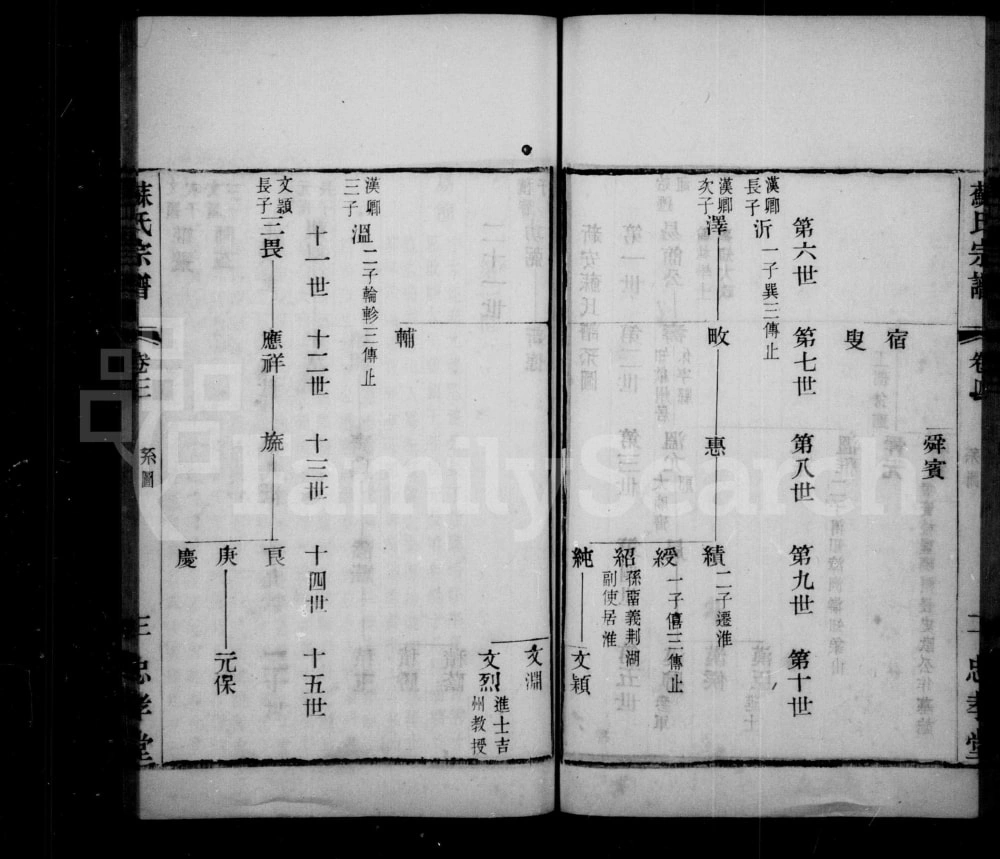 蘇氏宗譜
卷四
系圖
二
忠孝堂
舜賓
宿
叟
第六世 第七世 第八世 第九世 第十世
漢卿長子 沂 一子巽三傳止
漢卿次子 澤 畋 惠 績 二子遷淮
綬 一子僖三傳止
紹 孫畱義荆湖副使居淮
純 文穎
文淵
文烈 進士吉州教授
輔
漢卿三子 溫 二子輪軫三傳止
十一世 十二世 十三世 十四世 十五世
文穎長子 三畏 應祥 旒 良
庚 元保
慶
蘇氏宗譜
卷三
系圖
三
忠孝堂
FamilySearch